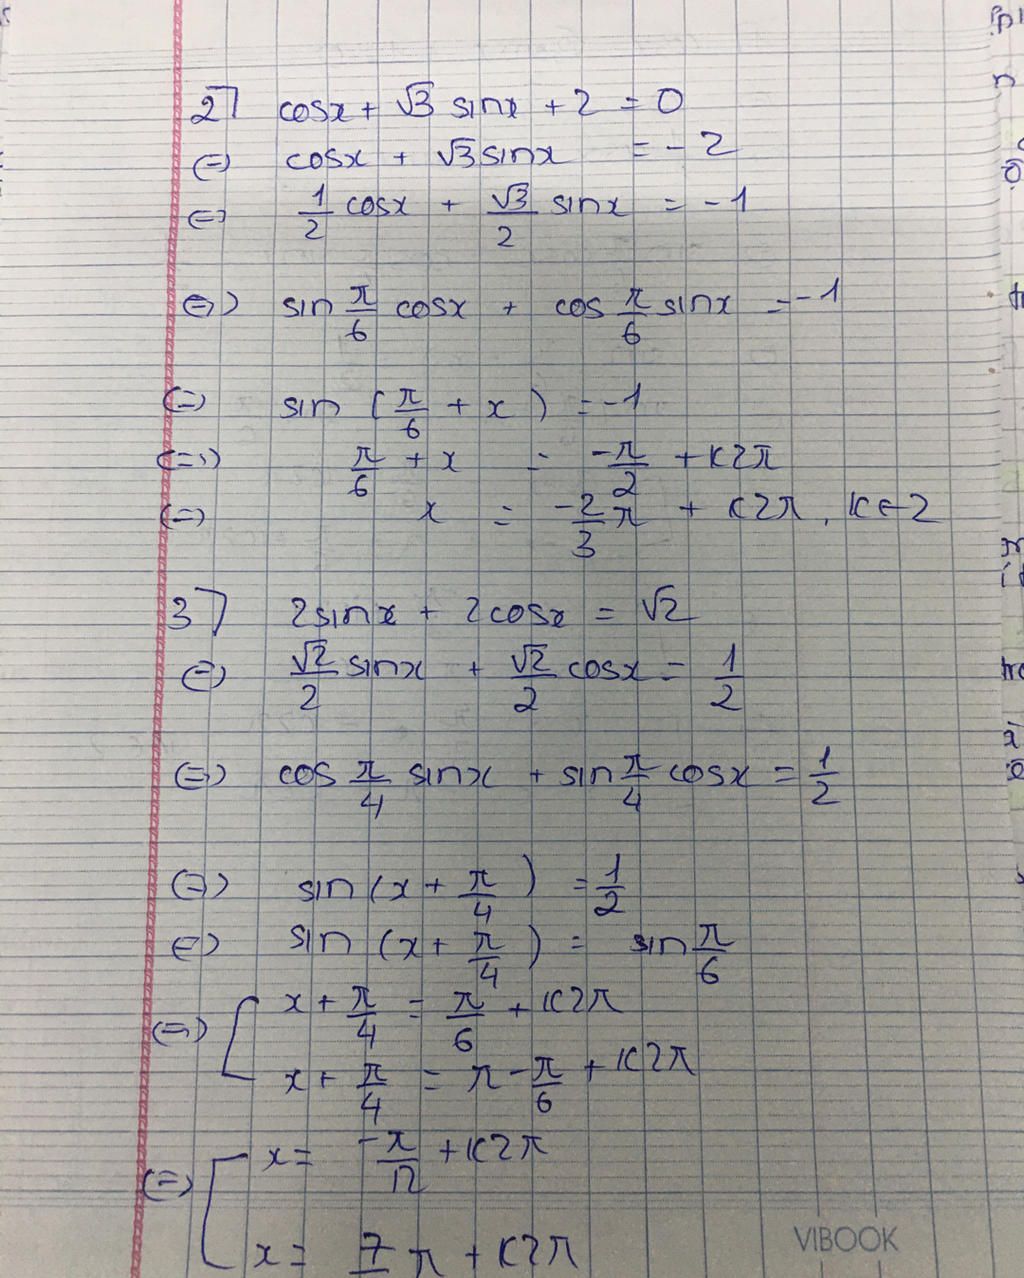 2) cosx + √3 sinx + 2 = 0
⇔ cosx + √3 sinx = -2
⇔ 1/2 cosx + √3/2 sinx = -1
⇔ sin π/6 cosx + cos π/6 sinx = -1
⇔ sin (π/6 + x) = -1
⇔ π/6 + x = -π/2 + k2π
⇔ x = -2/3 π + k2π, k ∈ Z
3) 2sinx + 2cosx = √2
⇔ √2/2 sinx + √2/2 cosx = 1/2
⇔ cos π/4 sinx + sin π/4 cosx = 1/2
⇔ sin (x + π/4) = 1/2
⇔ sin (x + π/4) = sin π/6
⇔ [ x + π/4 = π/6 + k2π
x + π/4 = π - π/6 + k2π
⇔ [ x = -π/12 + k2π
x = 7/ π + k2π
VIBOOK